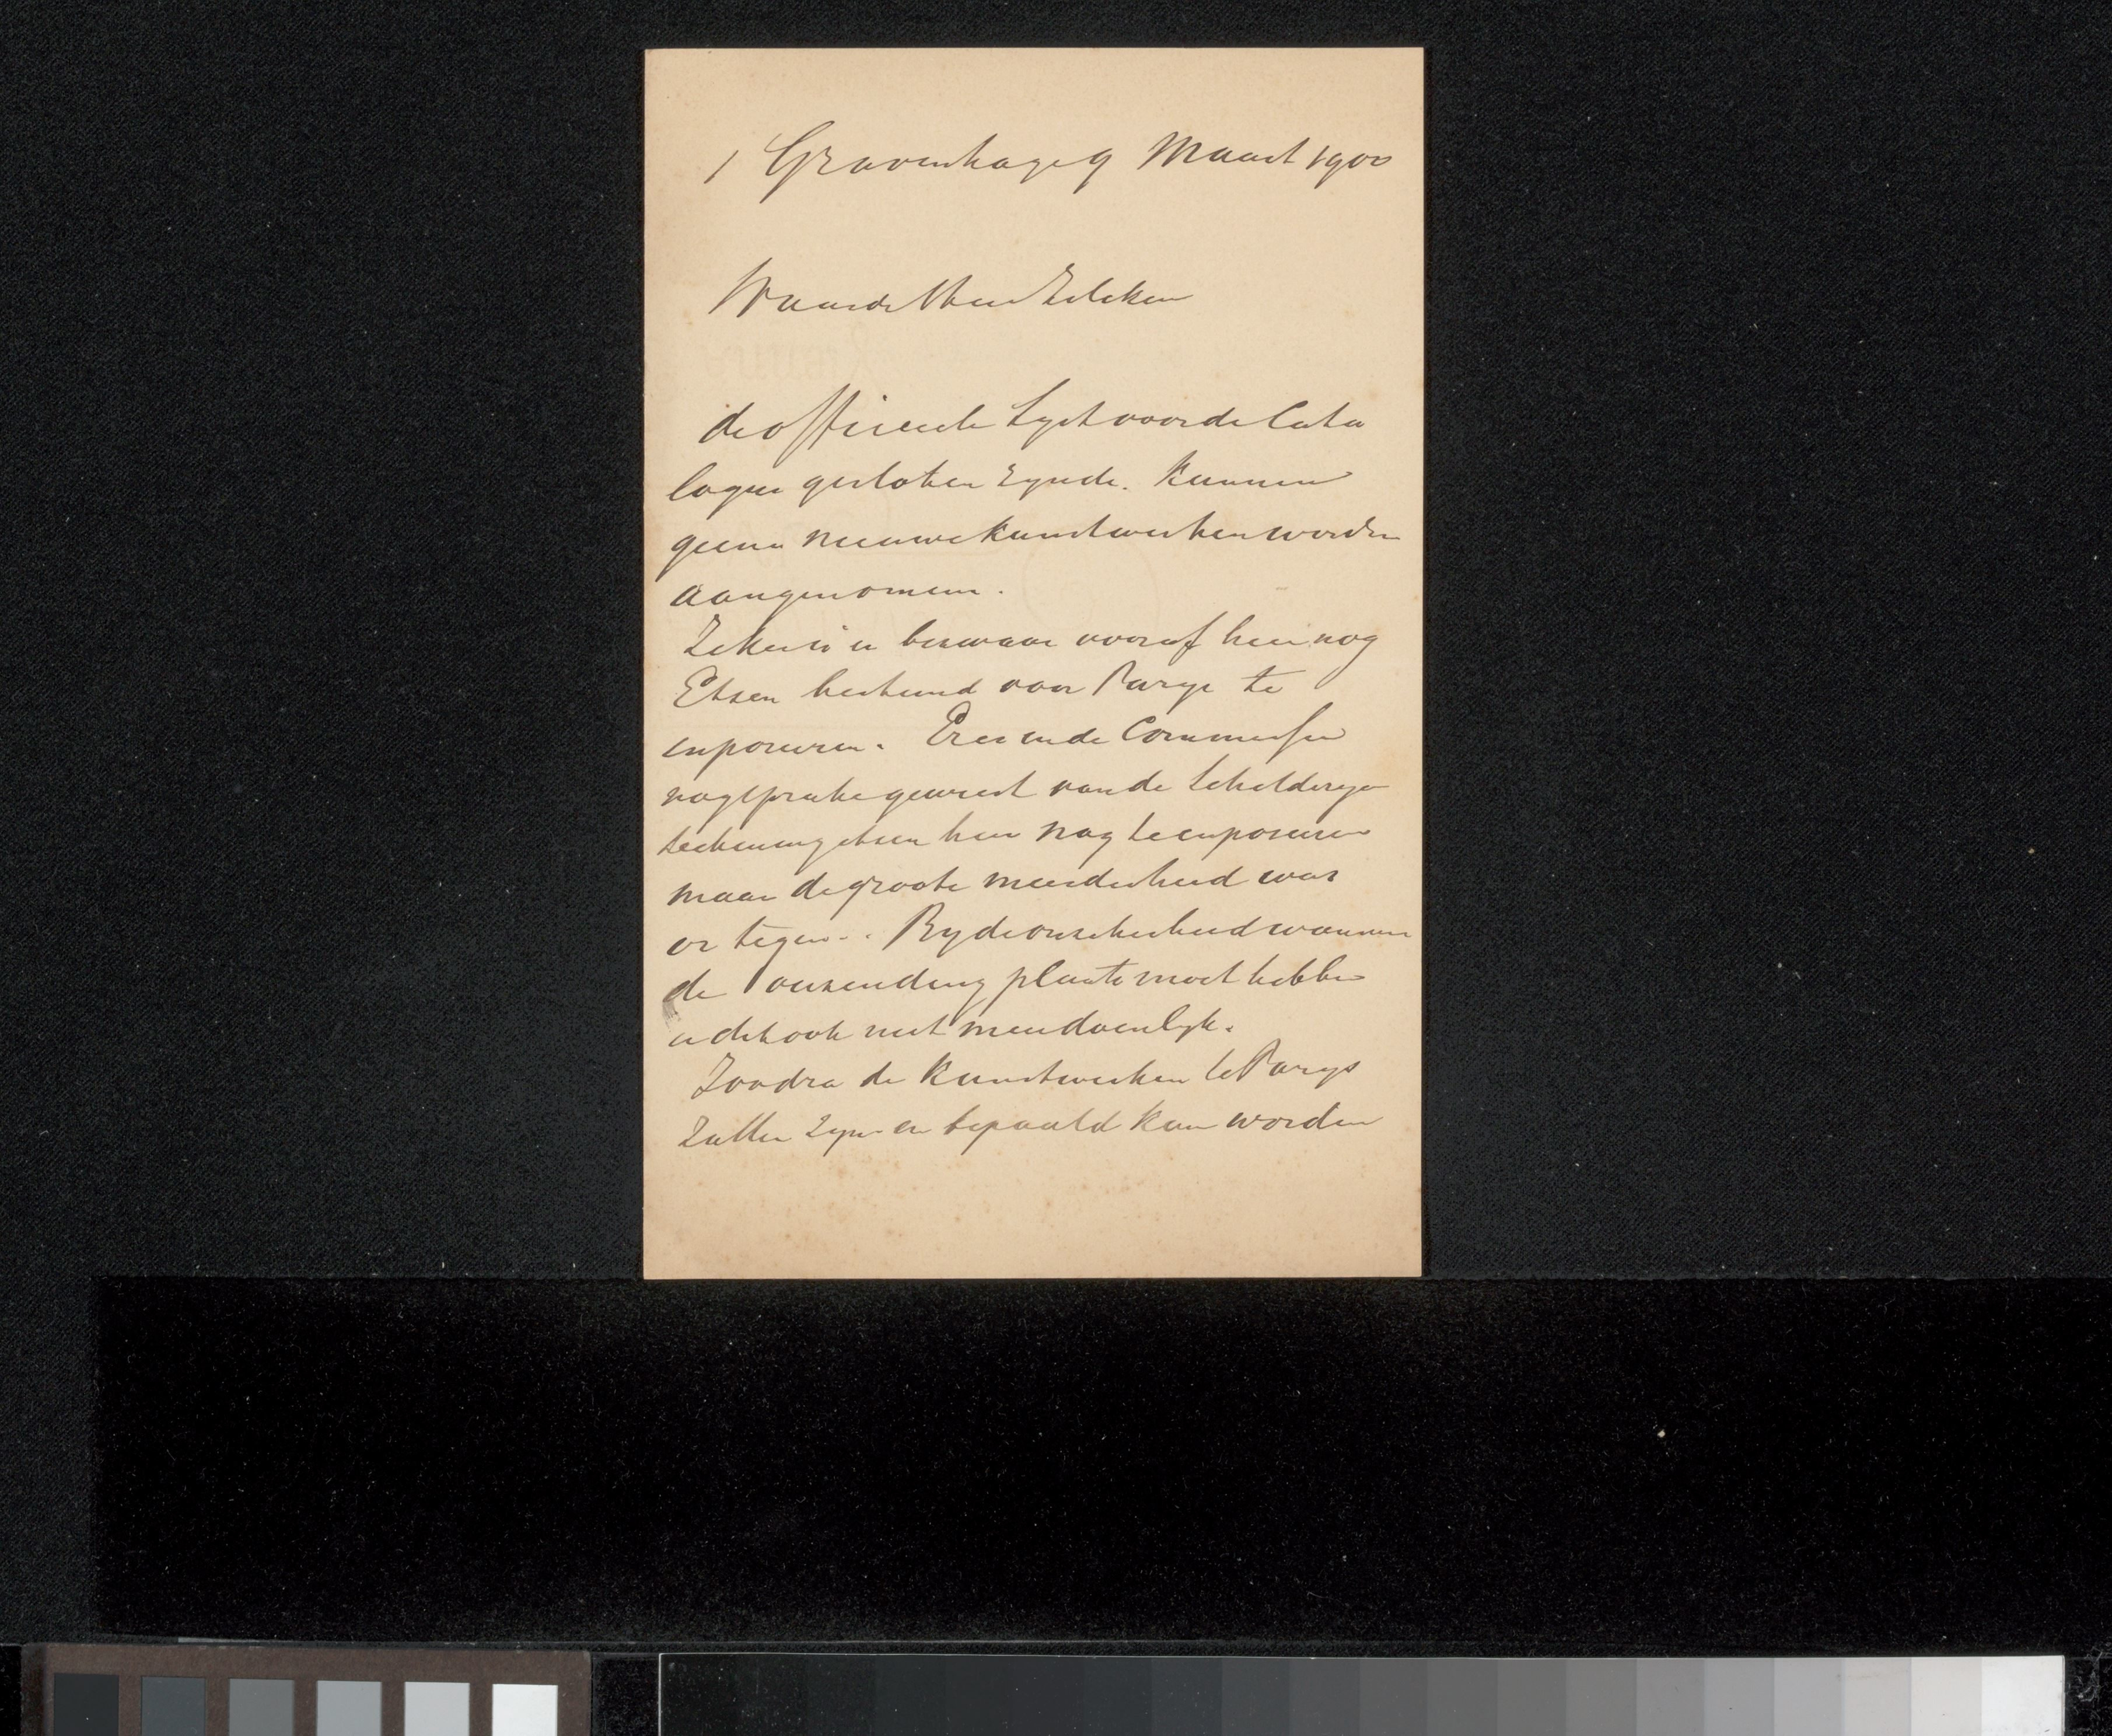 's Gravenhage 9 Maart 1900
Waarde Heer Zilcken
de officieele Lyst voor de Cata
logus gesloten zynde. kunnen
geene nieuwe kunstwerken worden
aangenomen.
Zeker is er bezwaar vooraf hier nog
Etsen bestemd voor Parys te
exposeren. Er is in de Commissie
nog sprake geweest van de Schilderyen
teekening etsen hier nog te exposeren
maar de groote meerderheid was
er tegen. By de onzekerheid wanneer
de verzending plaats moet hebben
is dit ook niet meer doenlyk.
Zoodra de Kunstwerken te Parys
zullen zyn en bepaald kan worden